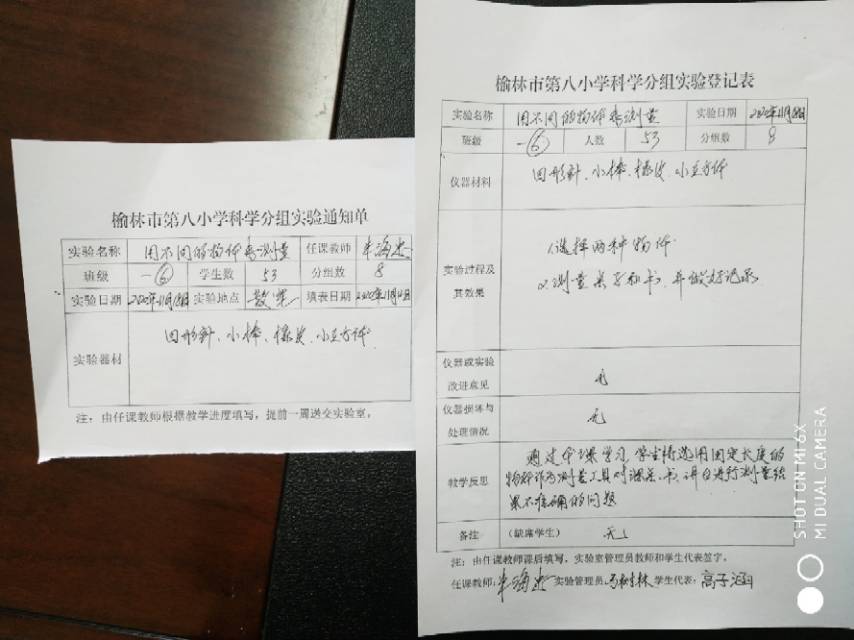 榆林市第八小学科学分组实验通知单
实验名称 用不同的物体来测量 任课教师
班级 一⑥ 学生数 53 分组数 8
实验日期 2020年11月18日 实验地点 教室 填表日期 2020年11月
实验器材 回形针、小棒、橡皮、小立方体
注：由任课教师根据教学进度填写，提前一周送交实验室。
榆林市第八小学科学分组实验登记表
实验名称 用不同的物体来测量 实验日期 2020年11月18日
班级 一⑥ 人数 53 分组数 8
仪器材料 回形针、小棒、橡皮、小立方体
1.选择两种物体
实验过程及其效果
2.测量桌子和书，并做好记录
仪器或实验改进意见 无
仪器损坏与处理情况 无
通过本课学习，学生将选用固定长度的
教学反思 物体作为测量工具对课桌、书、讲台进行测量结
果不准确的问题
备注 （缺席学生） 无
注：由任课教师课后填写，实验室管理员教师和学生代表签字。
任课教师： 实验管理员： 学生代表：高子涵
SHOT ON MI 6X
MI DUAL CAMERA